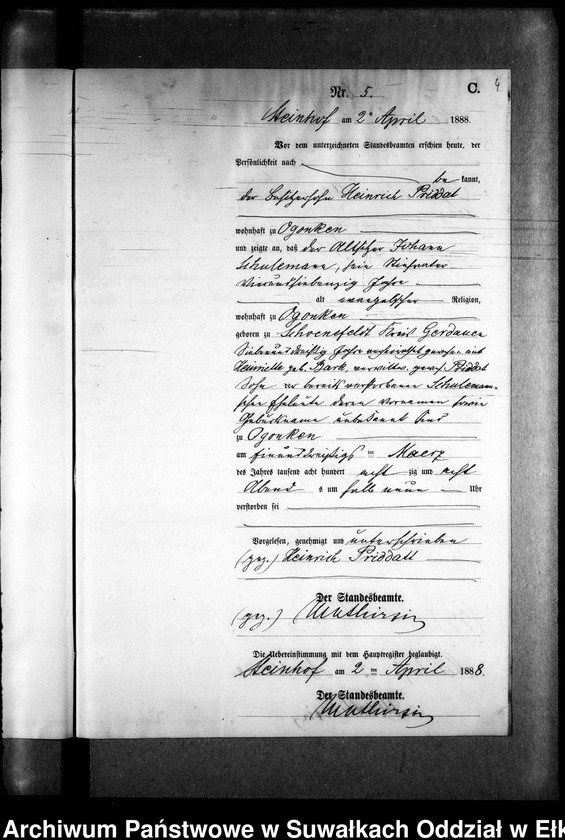 Nr. 5.
C.
4
Steinhof am 2n April 1888.
Vor dem unterzeichneten Standesbeamten erschien heute, der
Persönlichkeit nach
be kannt,
der Besitzersohn Heinrich Priddat
wohnhaft zu Ogonken
und zeigte an, daß der Altsitzer Johann
Schulemann, sein Stiefvater
vierundsiebenzig Jahre
alt evangelischer Religion,
wohnhaft zu Ogonken
geboren zu Schoenefeldt Kreis Gerdauen
Siebenunddreißig Jahre verheirathet gewesen mit
Henriette geb. Bark, verwittw. gewes. Priddat
Sohn der bereits verstorbenen Schuleman-
schen Eheleute deren Vornamen sowie
Geburtsname unbekannt sind
zu Ogonken
am einunddreißigs ten Maerz
des Jahres tausend acht hundert acht zig und acht
Abend s um halb neun Uhr
verstorben sei
Vorgelesen, genehmigt und unterschrieben
(gez.) Heinrich Priddatt
Der Standesbeamte.
(gez.)
Die Uebereinstimmung mit dem Hauptregister beglaubigt.
Steinhof am 2 ten April 1888.
Der Standesbeamte.
Archiwum Państwowe w Suwałkach Oddział w Ełk